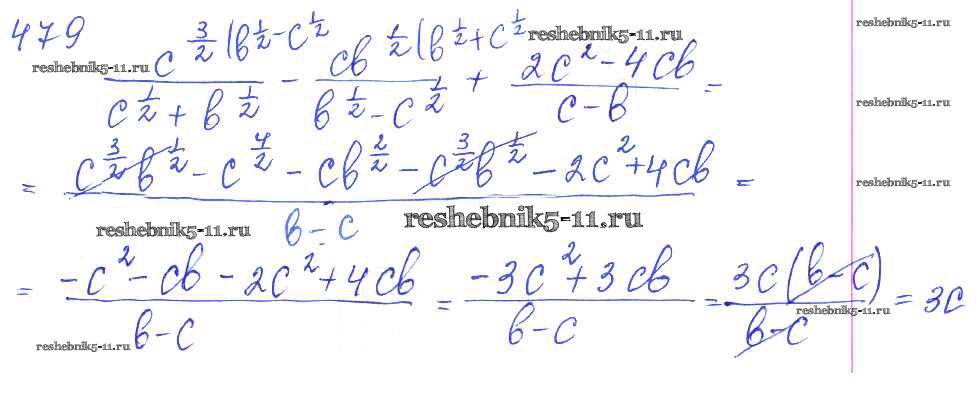 479
c^(3/2) (b^(1/2) - c^(1/2) / (c^(1/2) + b^(1/2)) - cb^(1/2) (b^(1/2) + c^(1/2) / (b^(1/2) - c^(1/2)) + (2c^2 - 4cb) / (c - b) =
= (c^(3/2) b^(1/2) - c^(4/2) - cb^(2/2) - c^(3/2) b^(1/2) - 2c^2 + 4cb) / (b - c) =
= (-c^2 - cb - 2c^2 + 4cb) / (b - c) = (-3c^2 + 3cb) / (b - c) = 3c(b - c) / (b - c) = 3c
reshebnik5-11.ru
reshebnik5-11.ru
reshebnik5-11.ru
reshebnik5-11.ru
reshebnik5-11.ru
reshebnik5-11.ru
reshebnik5-11.ru
reshebnik5-11.ru
reshebnik5-11.ru